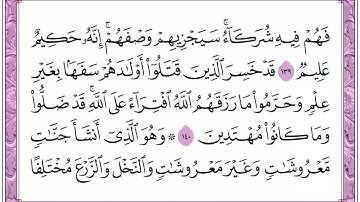 فَهُمْ فِيهِ شُرَكَآءُۚ سَيَجْزِيهِمْ وَصْفَهُمْۚ إِنَّهُۥ حَكِيمٌ
عَلِيمٌ ١٣٩ قَدْ خَسِرَ ٱلَّذِينَ قَتَلُوٓا۟ أَوْلَٰدَهُمْ سَفَهَۢا بِغَيْرِ
عِلْمٍ وَحَرَّمُوا۟ مَا رَزَقَهُمُ ٱللَّهُ ٱفْتِرَآءً عَلَى ٱللَّهِۚ قَدْ ضَلُّوا۟
وَمَا كَانُوا۟ مُهْتَدِينَ ١٤٠ ۞ وَهُوَ ٱلَّذِىٓ أَنشَأَ جَنَّٰتٍ
مَّعْرُوشَٰتٍ وَغَيْرَ مَعْرُوشَٰتٍ وَٱلنَّخْلَ وَٱلزَّرْعَ مُخْتَلِفًا